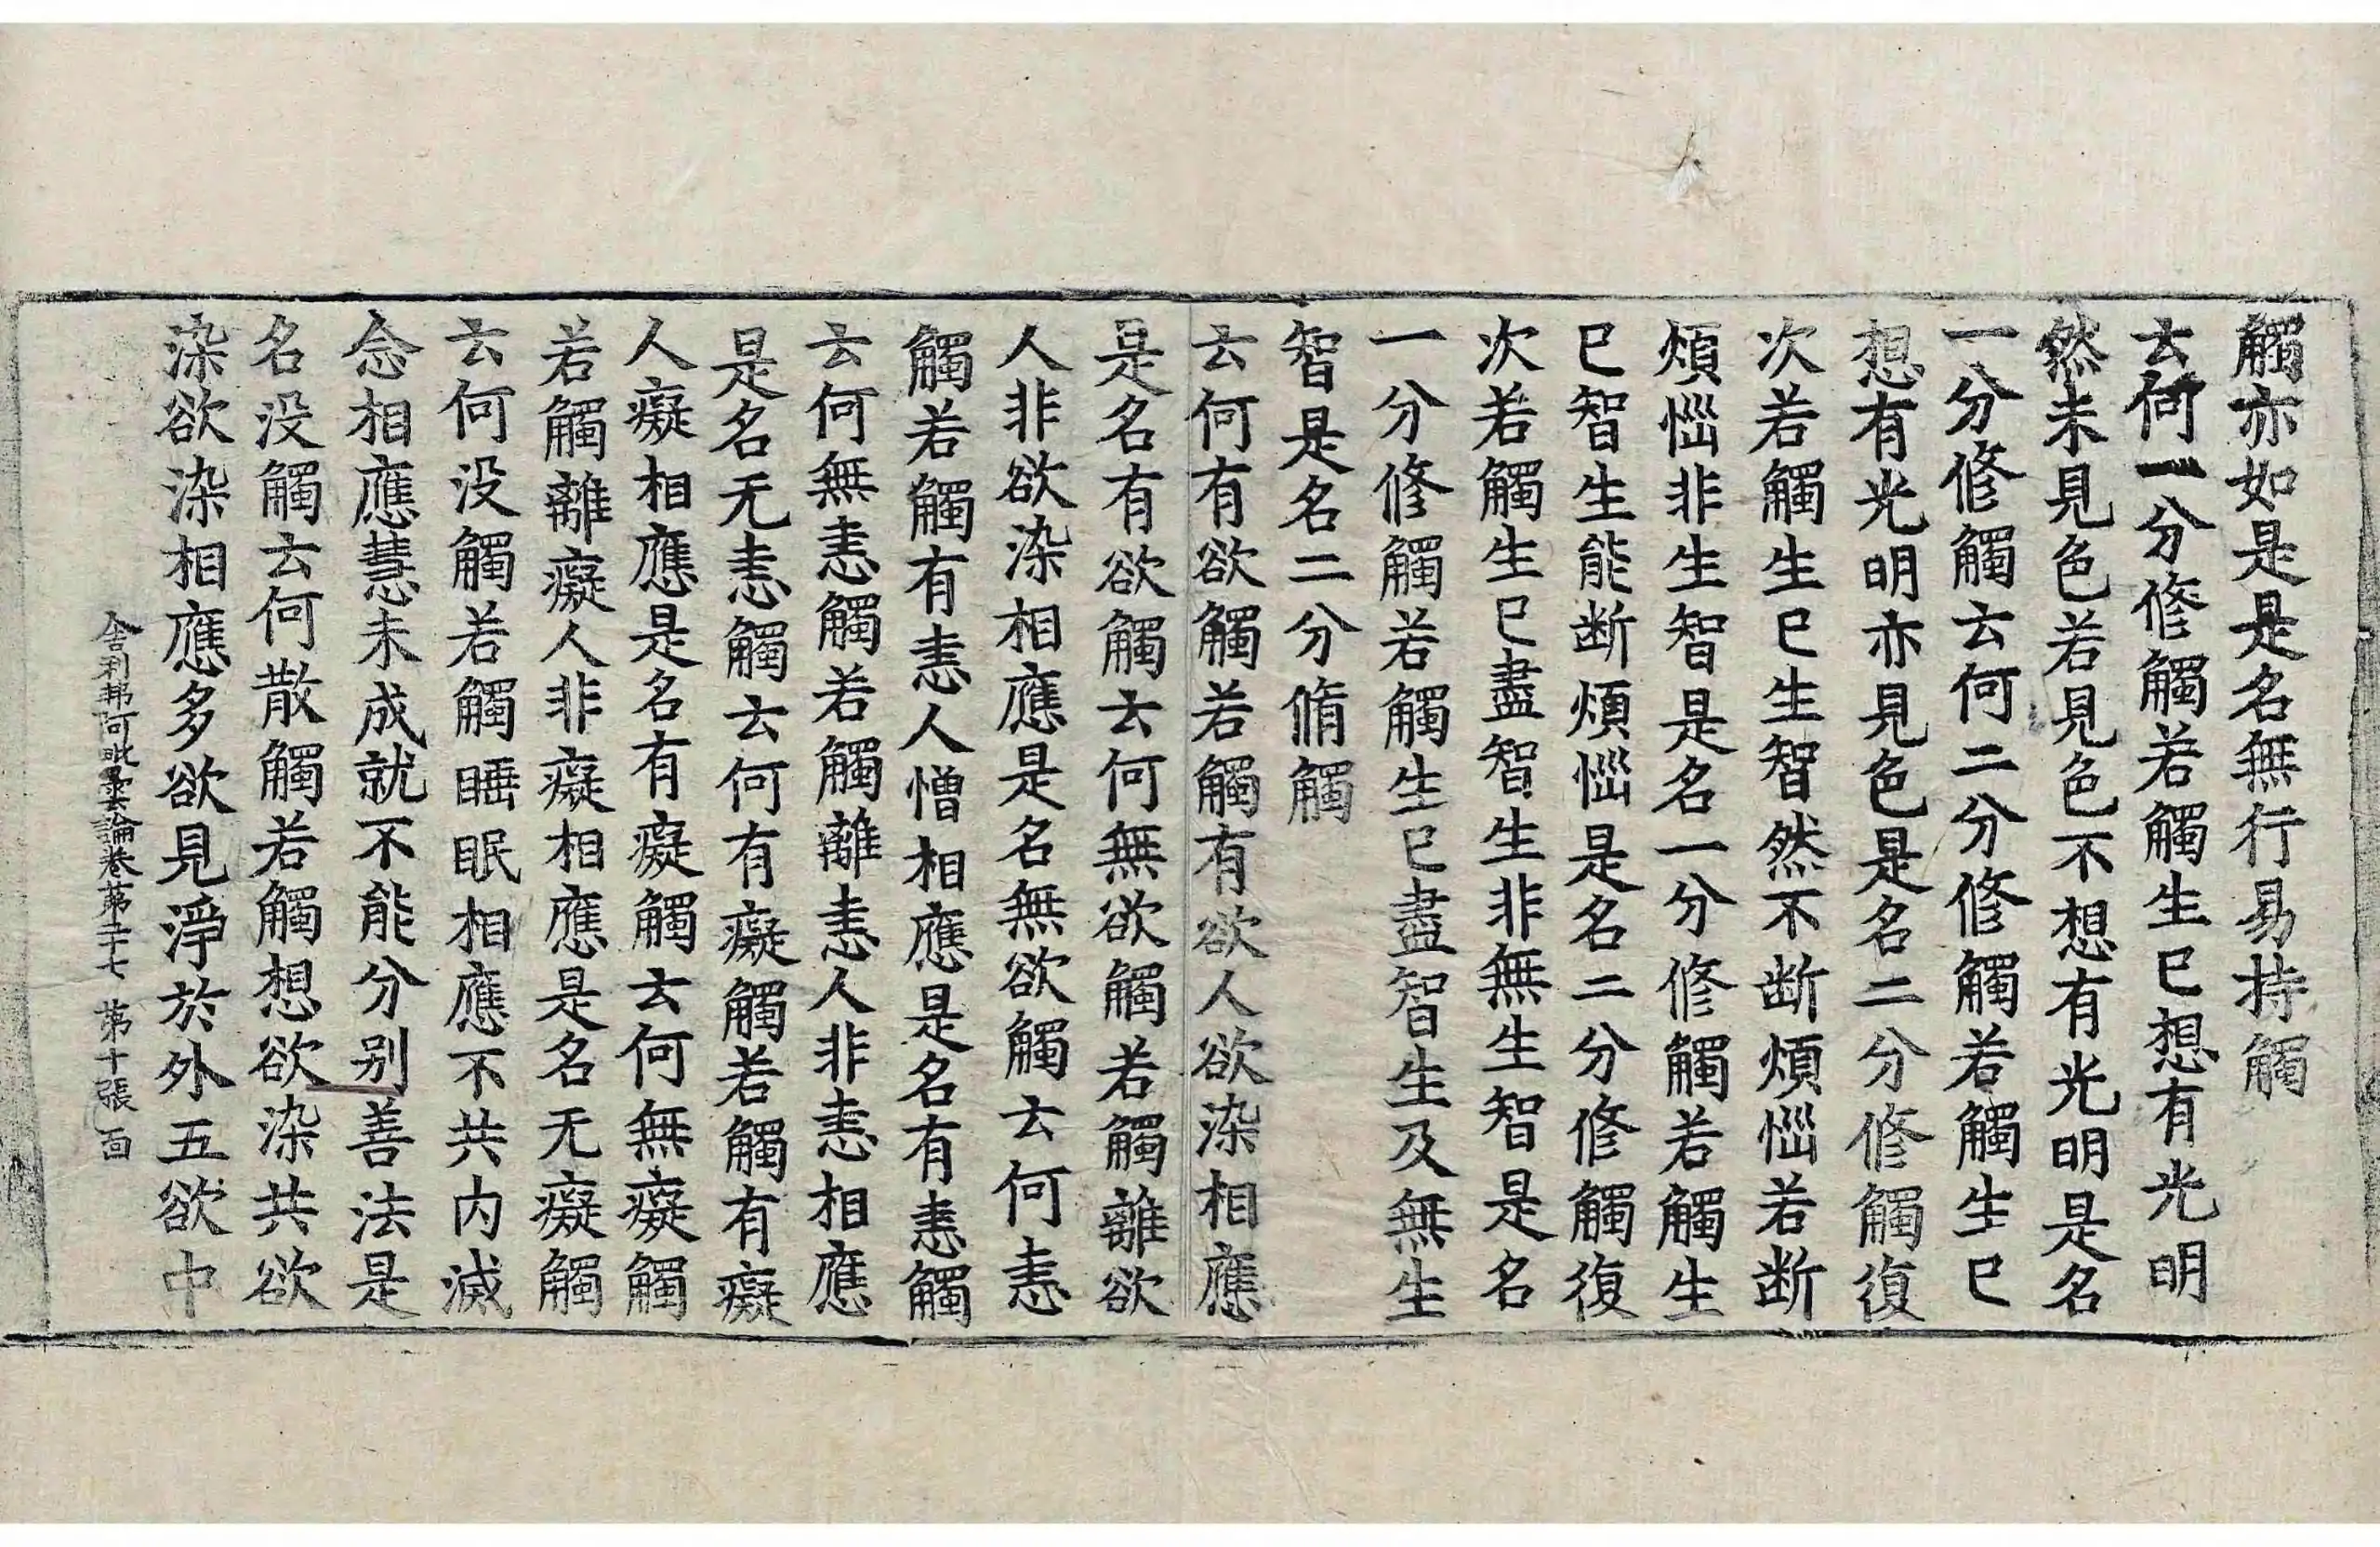 觸亦如是是名無行易持觸
云何一分修觸若觸生已想有光明
然未見色若見色不想有光明是名
一分修觸云何二分修觸若觸生已
想有光明亦見色是名二分修觸復
次若觸生已生智然不断煩惱若断
煩惱非生智是名一分修觸若觸生
已智生能断煩惱是名二分修觸復
次若觸生已盡智生非無生智是名
一分修觸若觸生已盡智生及無生
智是名二分脩觸
云何有欲觸若觸有欲人欲染相應
是名有欲觸云何無欲觸若觸離欲
人非欲染相應是名無欲觸云何恚
觸若觸有恚人憎相應是名有恚觸
云何無恚觸若觸離恚人非恚相應
是名无恚觸云何有癡觸若觸有癡
人癡相應是名有癡觸云何無癡觸
若觸離癡人非癡相應是名无癡觸
云何没觸若觸睡眠相應不共内滅
念相應慧未成就不能分别善法是
名没觸云何散觸若觸想欲染共欲
染欲染相應多欲見淨於外五欲中
舍利弗阿毗曇論卷第二十七 第十張 面